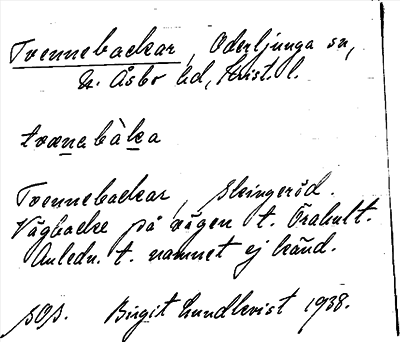 Tvennebackar, Oderljunga sn,
N. Åsbo hd, Krist. l.
tvænabàka
Tvennebackar, Skingeröd.
Vägbacke på vägen t. Örahult.
Anledn. t. namnet ej känd.
SOS. Birgit Lundkvist 1938.